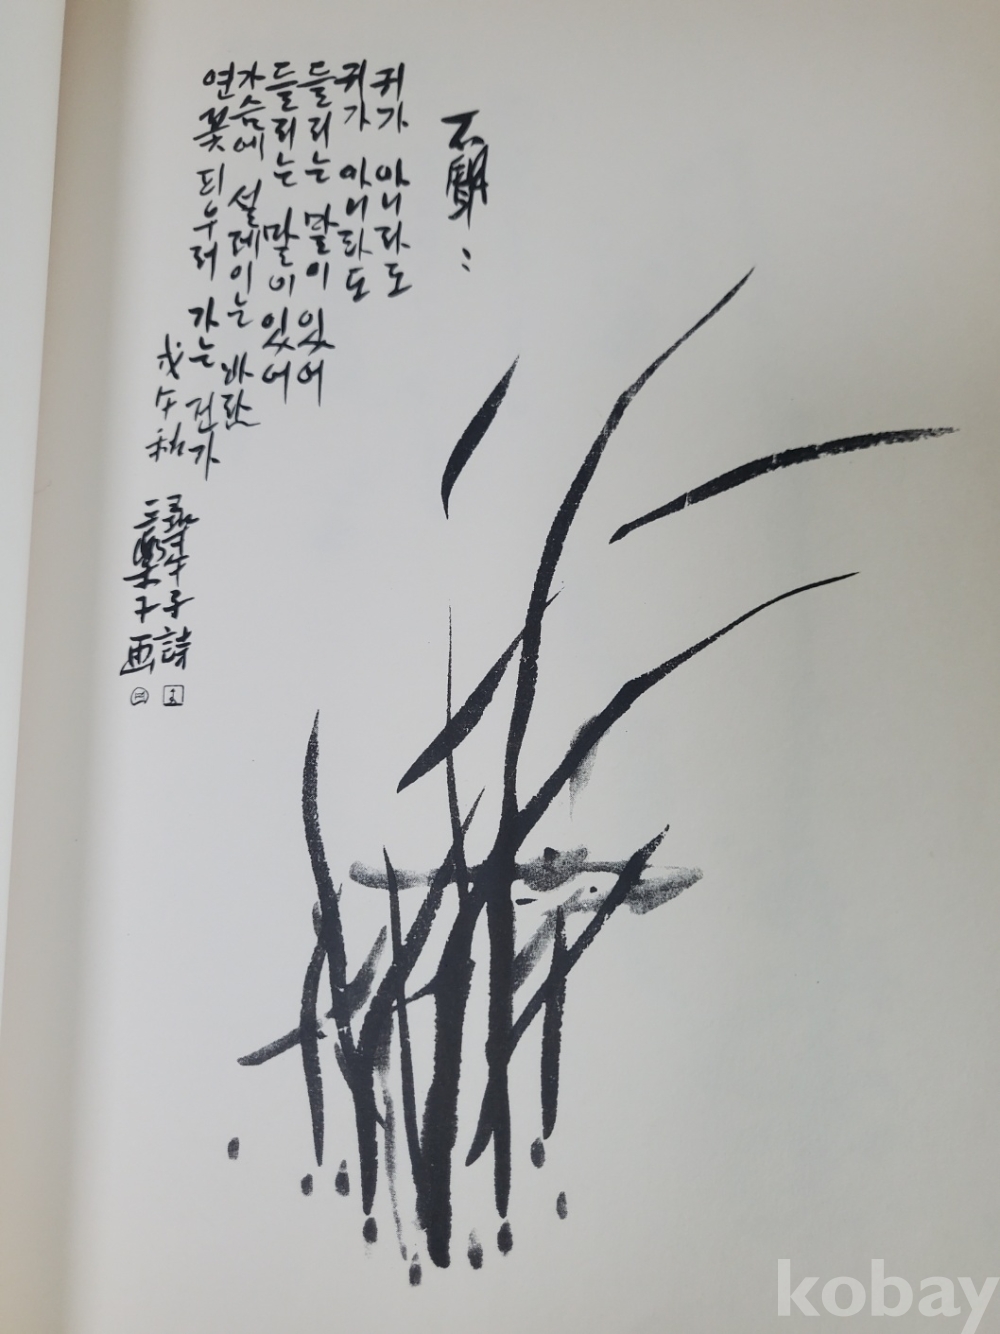 귀가 아니라도
귀가 아니라도
들리는 말이 있어
들리는 말이 있어
가슴에 설레이는 바람
연꽃 되누려 가는 건가
戊午秋
尋牛子 詩
三樂子 画
kobay